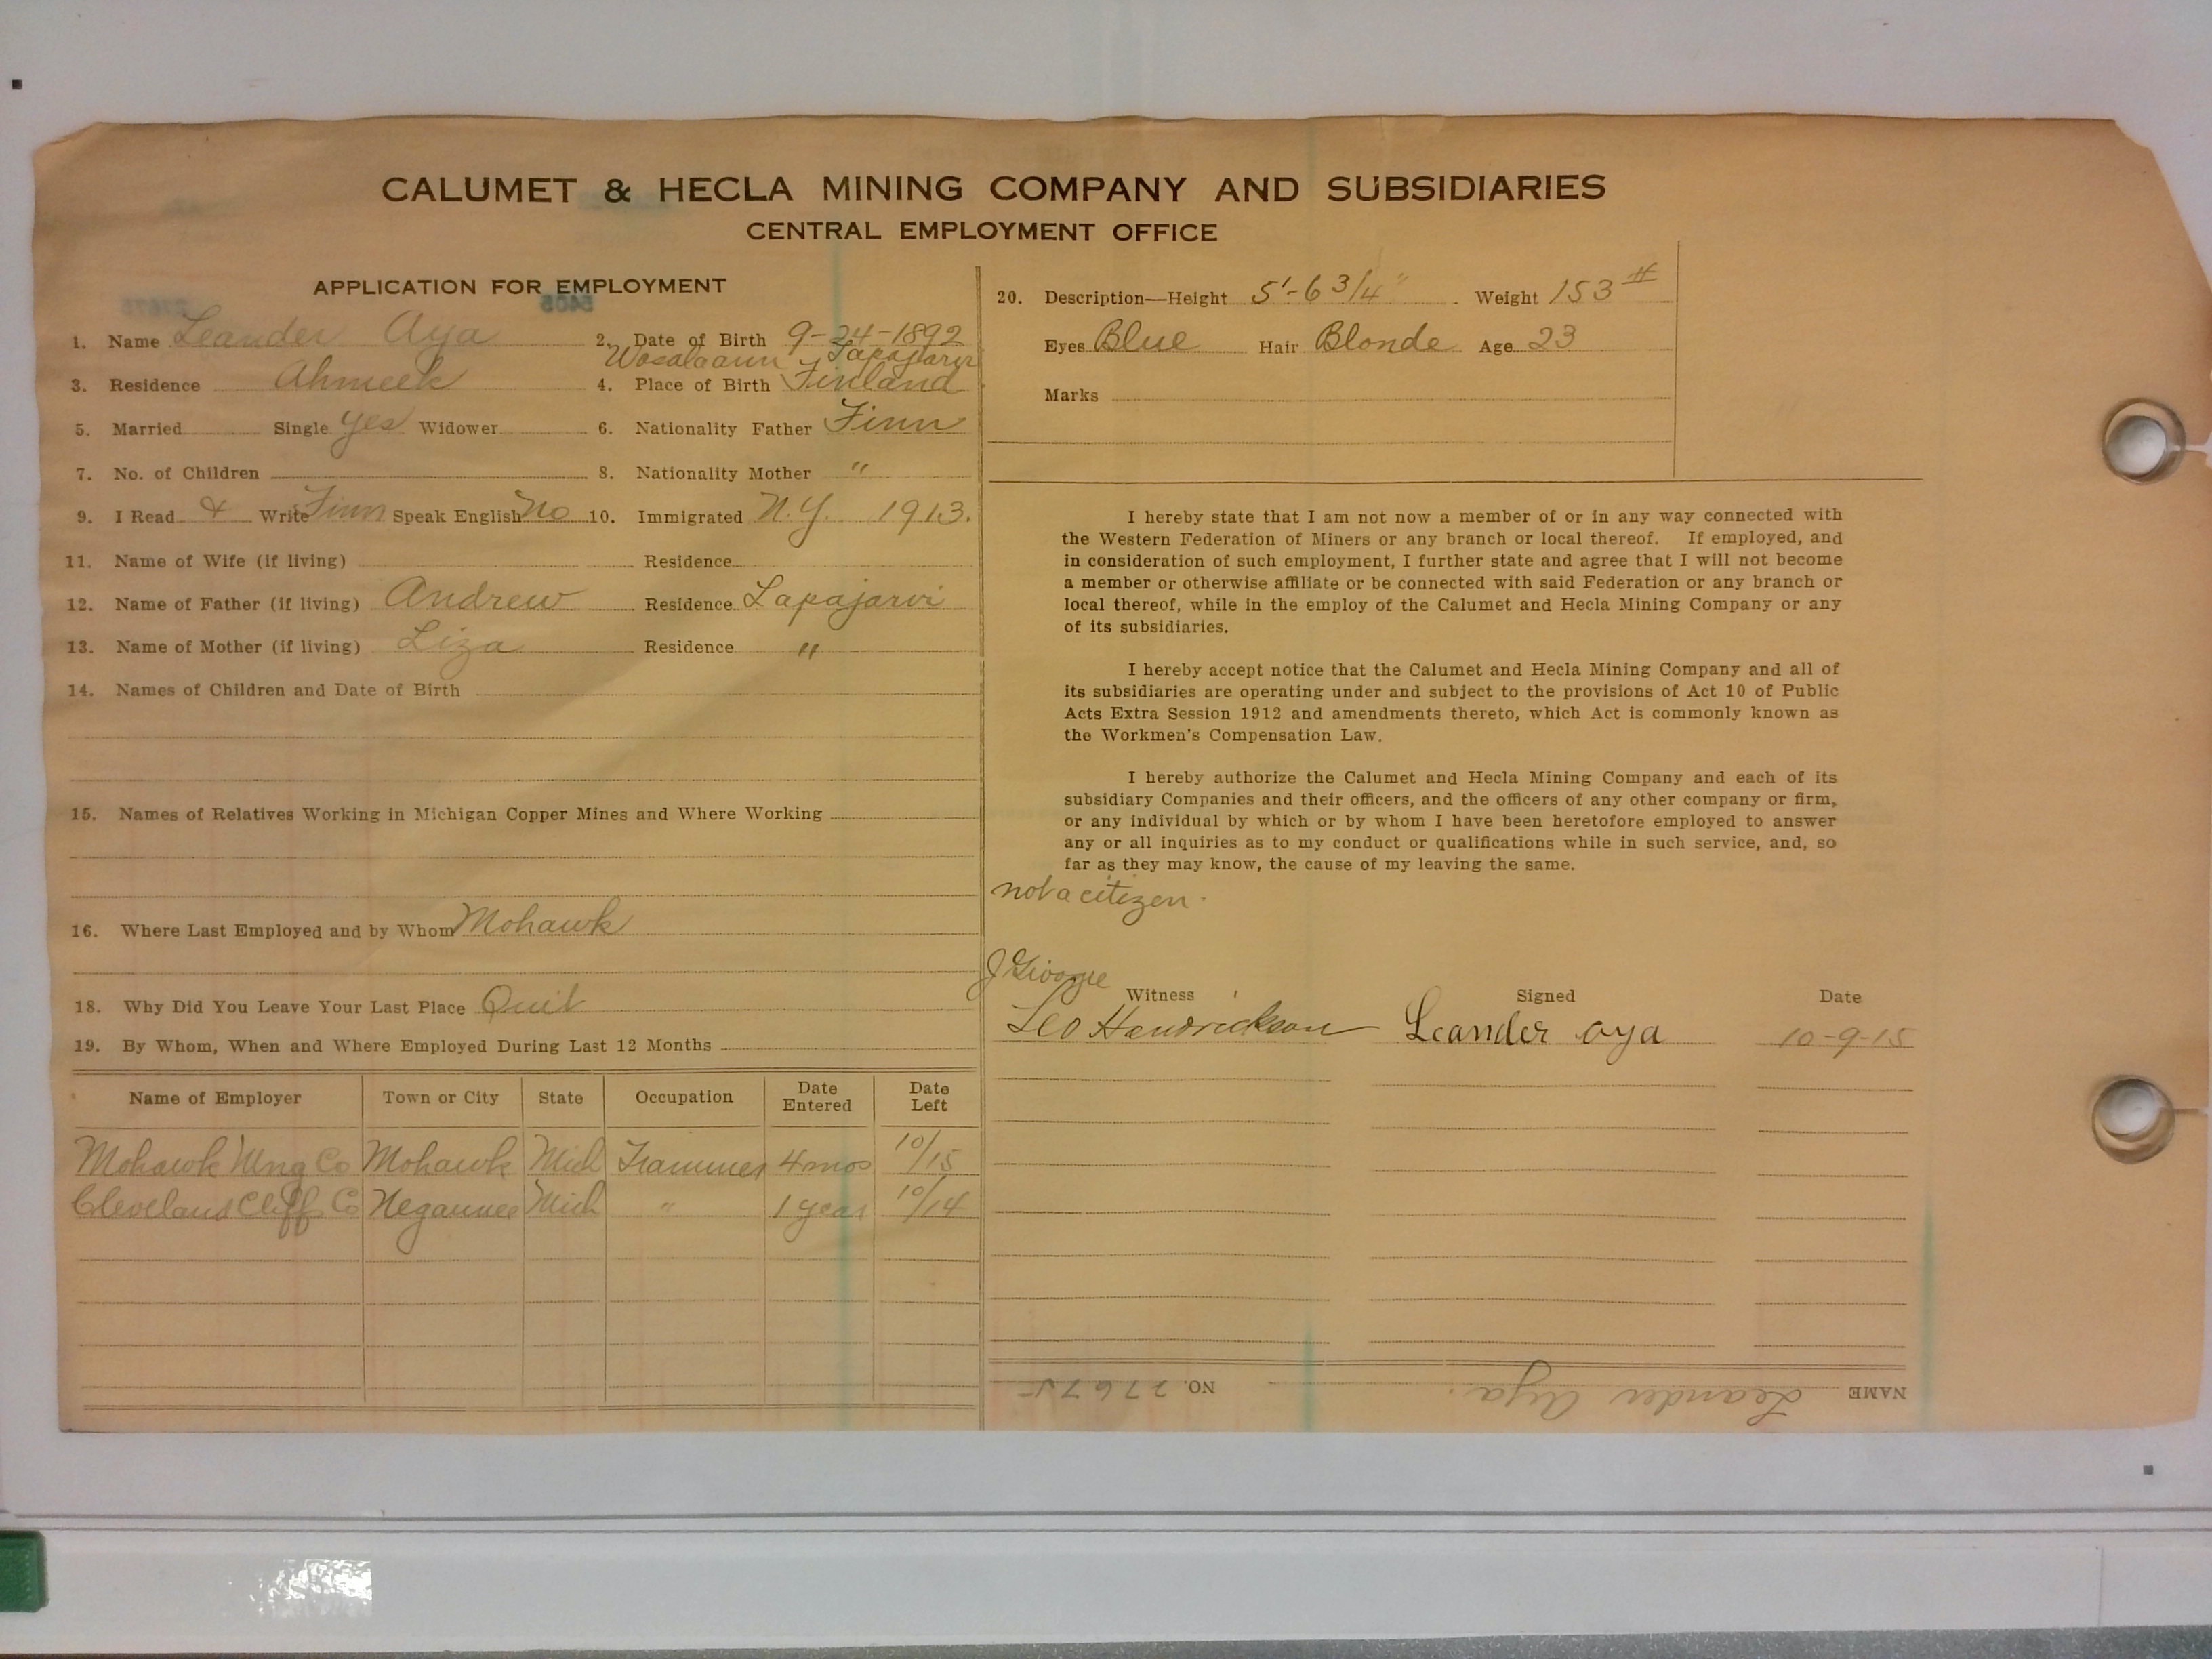 CALUMET & HECLA MINING COMPANY AND SUBSIDIARIES
CENTRAL EMPLOYMENT OFFICE
APPLICATION FOR EMPLOYMENT
5405
27675
1. Name Leander Aya 2. Date of Birth 9-24-1892
Wasalaann Lapajarvi
3. Residence Ahmeek 4. Place of Birth Finland
5. Married Single yes Widower 6. Nationality Father Finn
7. No. of Children 8. Nationality Mother "
9. I Read & Write Finn Speak English No 10. Immigrated N.Y. 1913.
11. Name of Wife (if living) Residence
12. Name of Father (if living) Andrew Residence Lapajarvi
13. Name of Mother (if living) Liza Residence "
14. Names of Children and Date of Birth
15. Names of Relatives Working in Michigan Copper Mines and Where Working
16. Where Last Employed and by Whom Mohawk
18. Why Did You Leave Your Last Place Quit
19. By Whom, When and Where Employed During Last 12 Months
Name of Employer Town or City State Occupation Date Entered Date Left
Mohawk Mng Co Mohawk Mich Trammer 4 mos 10/15
Cleveland Cliff Co Negaunee Mich " 1 year 10/14
20. Description—Height 5'-6 3/4" Weight 153#
Eyes Blue Hair Blonde Age 23
Marks
I hereby state that I am not now a member of or in any way connected with
the Western Federation of Miners or any branch or local thereof. If employed, and
in consideration of such employment, I further state and agree that I will not become
a member or otherwise affiliate or be connected with said Federation or any branch or
local thereof, while in the employ of the Calumet and Hecla Mining Company or any
of its subsidiaries.
I hereby accept notice that the Calumet and Hecla Mining Company and all of
its subsidiaries are operating under and subject to the provisions of Act 10 of Public
Acts Extra Session 1912 and amendments thereto, which Act is commonly known as
the Workmen's Compensation Law.
I hereby authorize the Calumet and Hecla Mining Company and each of its
subsidiary Companies and their officers, and the officers of any other company or firm,
or any individual by which or by whom I have been heretofore employed to answer
any or all inquiries as to my conduct or qualifications while in such service, and, so
far as they may know, the cause of my leaving the same.
not a citizen.
Witness Signed Date
Leo Hendrickson Leander aya 10-9-15
NAME Leander Aya. NO. 27675